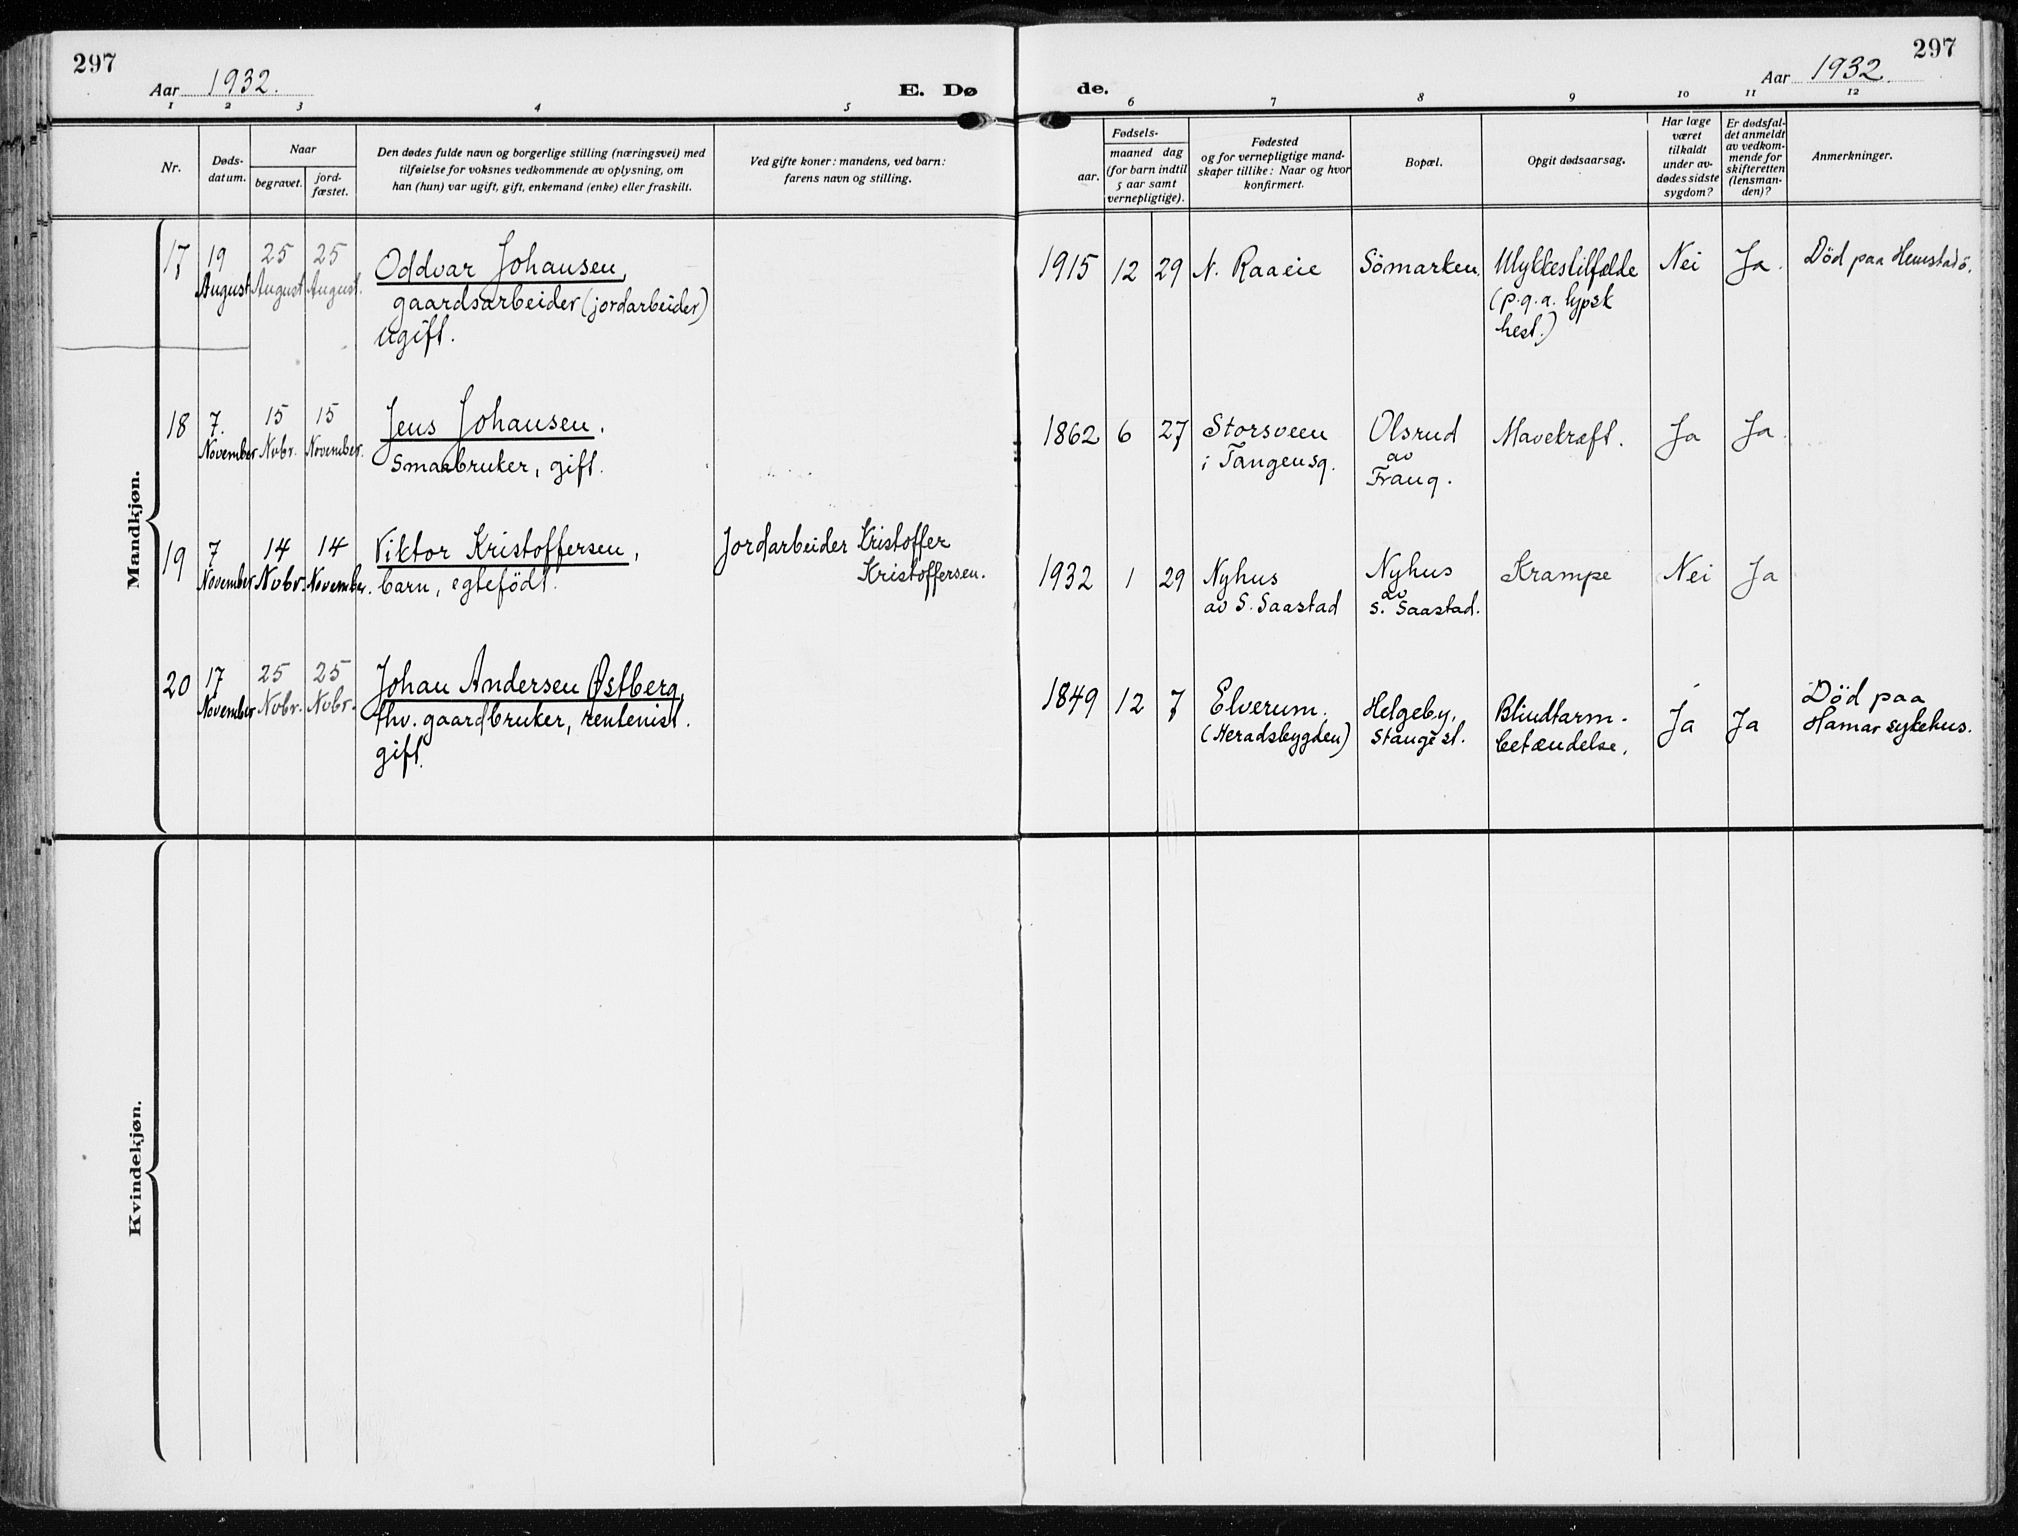 297
Aar 1932.
E. Dø
de.
Aar 1932.
297
1 2 3 4 5 6 7 8 9 10 11 12
Nr.
Døds-
datum.
Naar
begravet.
jord-
fæstet.
Den dødes fulde navn og borgerlige stilling (næringsvei) med
tilføielse for voksnes vedkommende av oplysning, om
han (hun) var ugift, gift, enkemand (enke) eller fraskilt.
Ved gifte koner: mandens, ved barn:
farens navn og stilling.
Fødsels-
aar.
maaned dag
(for barn indtil
5 aar samt
vernepligtige).
Fødested
og for vernepligtige mand-
skaper tillike: Naar og hvor
konfirmert.
Bopæl.
Opgit dødsaarsag.
Har læge
været
tilkaldt
under av-
dødes sidste
sygdom?
Er dødsfal-
det anmeldt
av vedkom-
mende for
skifteretten
(lensman-
den)?
Anmerkninger.
Mandkjøn.
17
19
August
25
August
25
August.
Oddvar Johansen,
gaardsarbeider (jordarbeider)
ugift.
1915 12 29
N. Raaeie
Sömarken.
Ulykkestilfælde
(p.g.a.
hest.)
Nei
Ja.
Død paa
18
7.
November
15
Nvbr.
15
November.
Jens Johansen.
Smaabruker, gift.
1862 6 27
Storsveen
i Tangensq.
Olsrud
av
Frang.
Mavekræft.
Ja
Ja.
19
7
November
14
Nvbr.
14
November.
Viktor Kristoffersen,
barn, egtefödt.
Jordarbeider Kristoffer
Kristoffersen.
1932 1 29
Nyhus
av S. Saastad
Nyhus
av
S. Saastad.
Krampe
Nei
Ja
20
17
November
25
Nvbr.
25
Nvbr.
Johan Andersen Østberg,
fhv. gaardbruker, rentenist.
gift.
1849 12 7
Elverum.
(Heradsbygden)
Helgeby,
Stange st.
Blindtarm-
betændelse.
Ja
Ja
Død paa
Hamar sykehus.
Kvindekjøn.